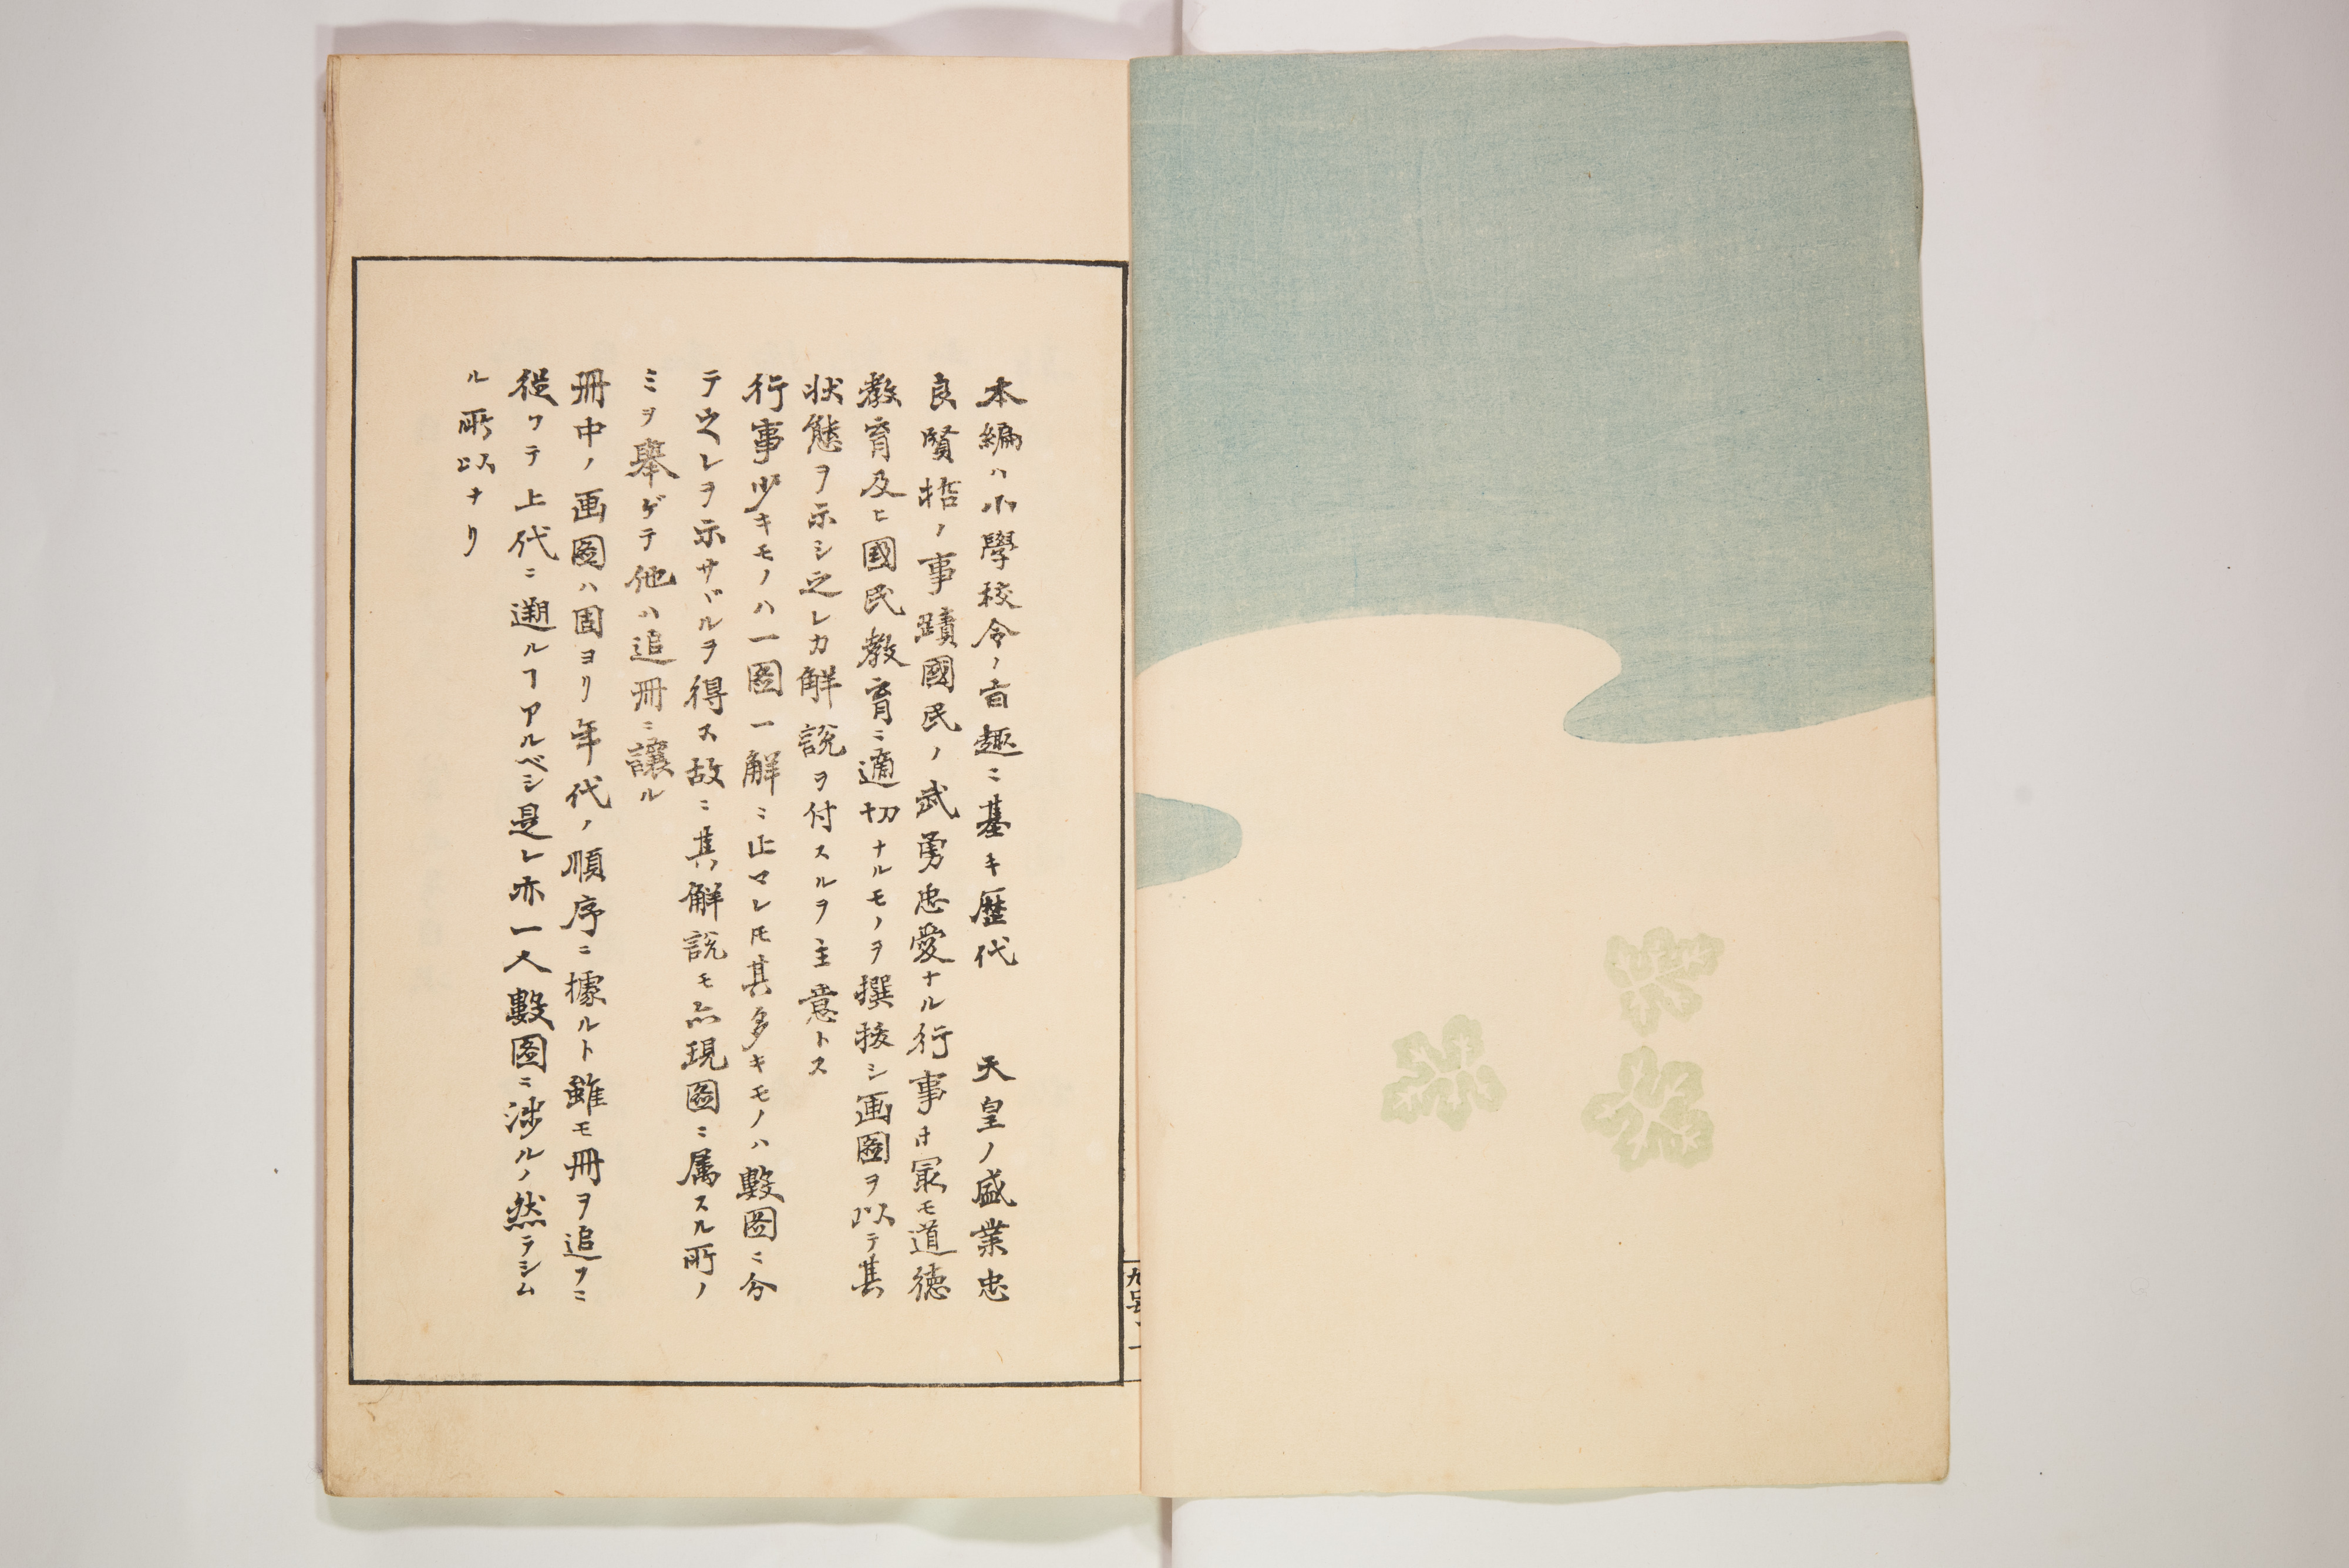 本編ハ小學校令ノ旨趣ニ基キ歴代　天皇ノ盛業忠
良賢哲ノ事蹟國民ノ武勇忠愛ナル行事中冣モ道徳
教育及ヒ國民教育ニ適切ナルモノヲ撰抜シ画圖ヲ以テ其
状態ヲ示シ之レカ解説ヲ付スルヲ主意トス
行事少キモノハ一圖一解ニ止マレ𪜈其多キモノハ數圖ニ分
テ之レヲ示サヾルヲ得ス故ニ其解説モ亦現圖ニ属スル所ノ
ミヲ舉ゲテ他ハ追冊ニ讓ル
冊中ノ画圖ハ固ヨリ年代ノ順序ニ據ルト雖モ冊ヲ追フニ
從ツテ上代ニ遡ルヿアルベシ是レ亦一人數圖ニ渉ルノ然ラシム
ル所以ナリ
九号ノ一